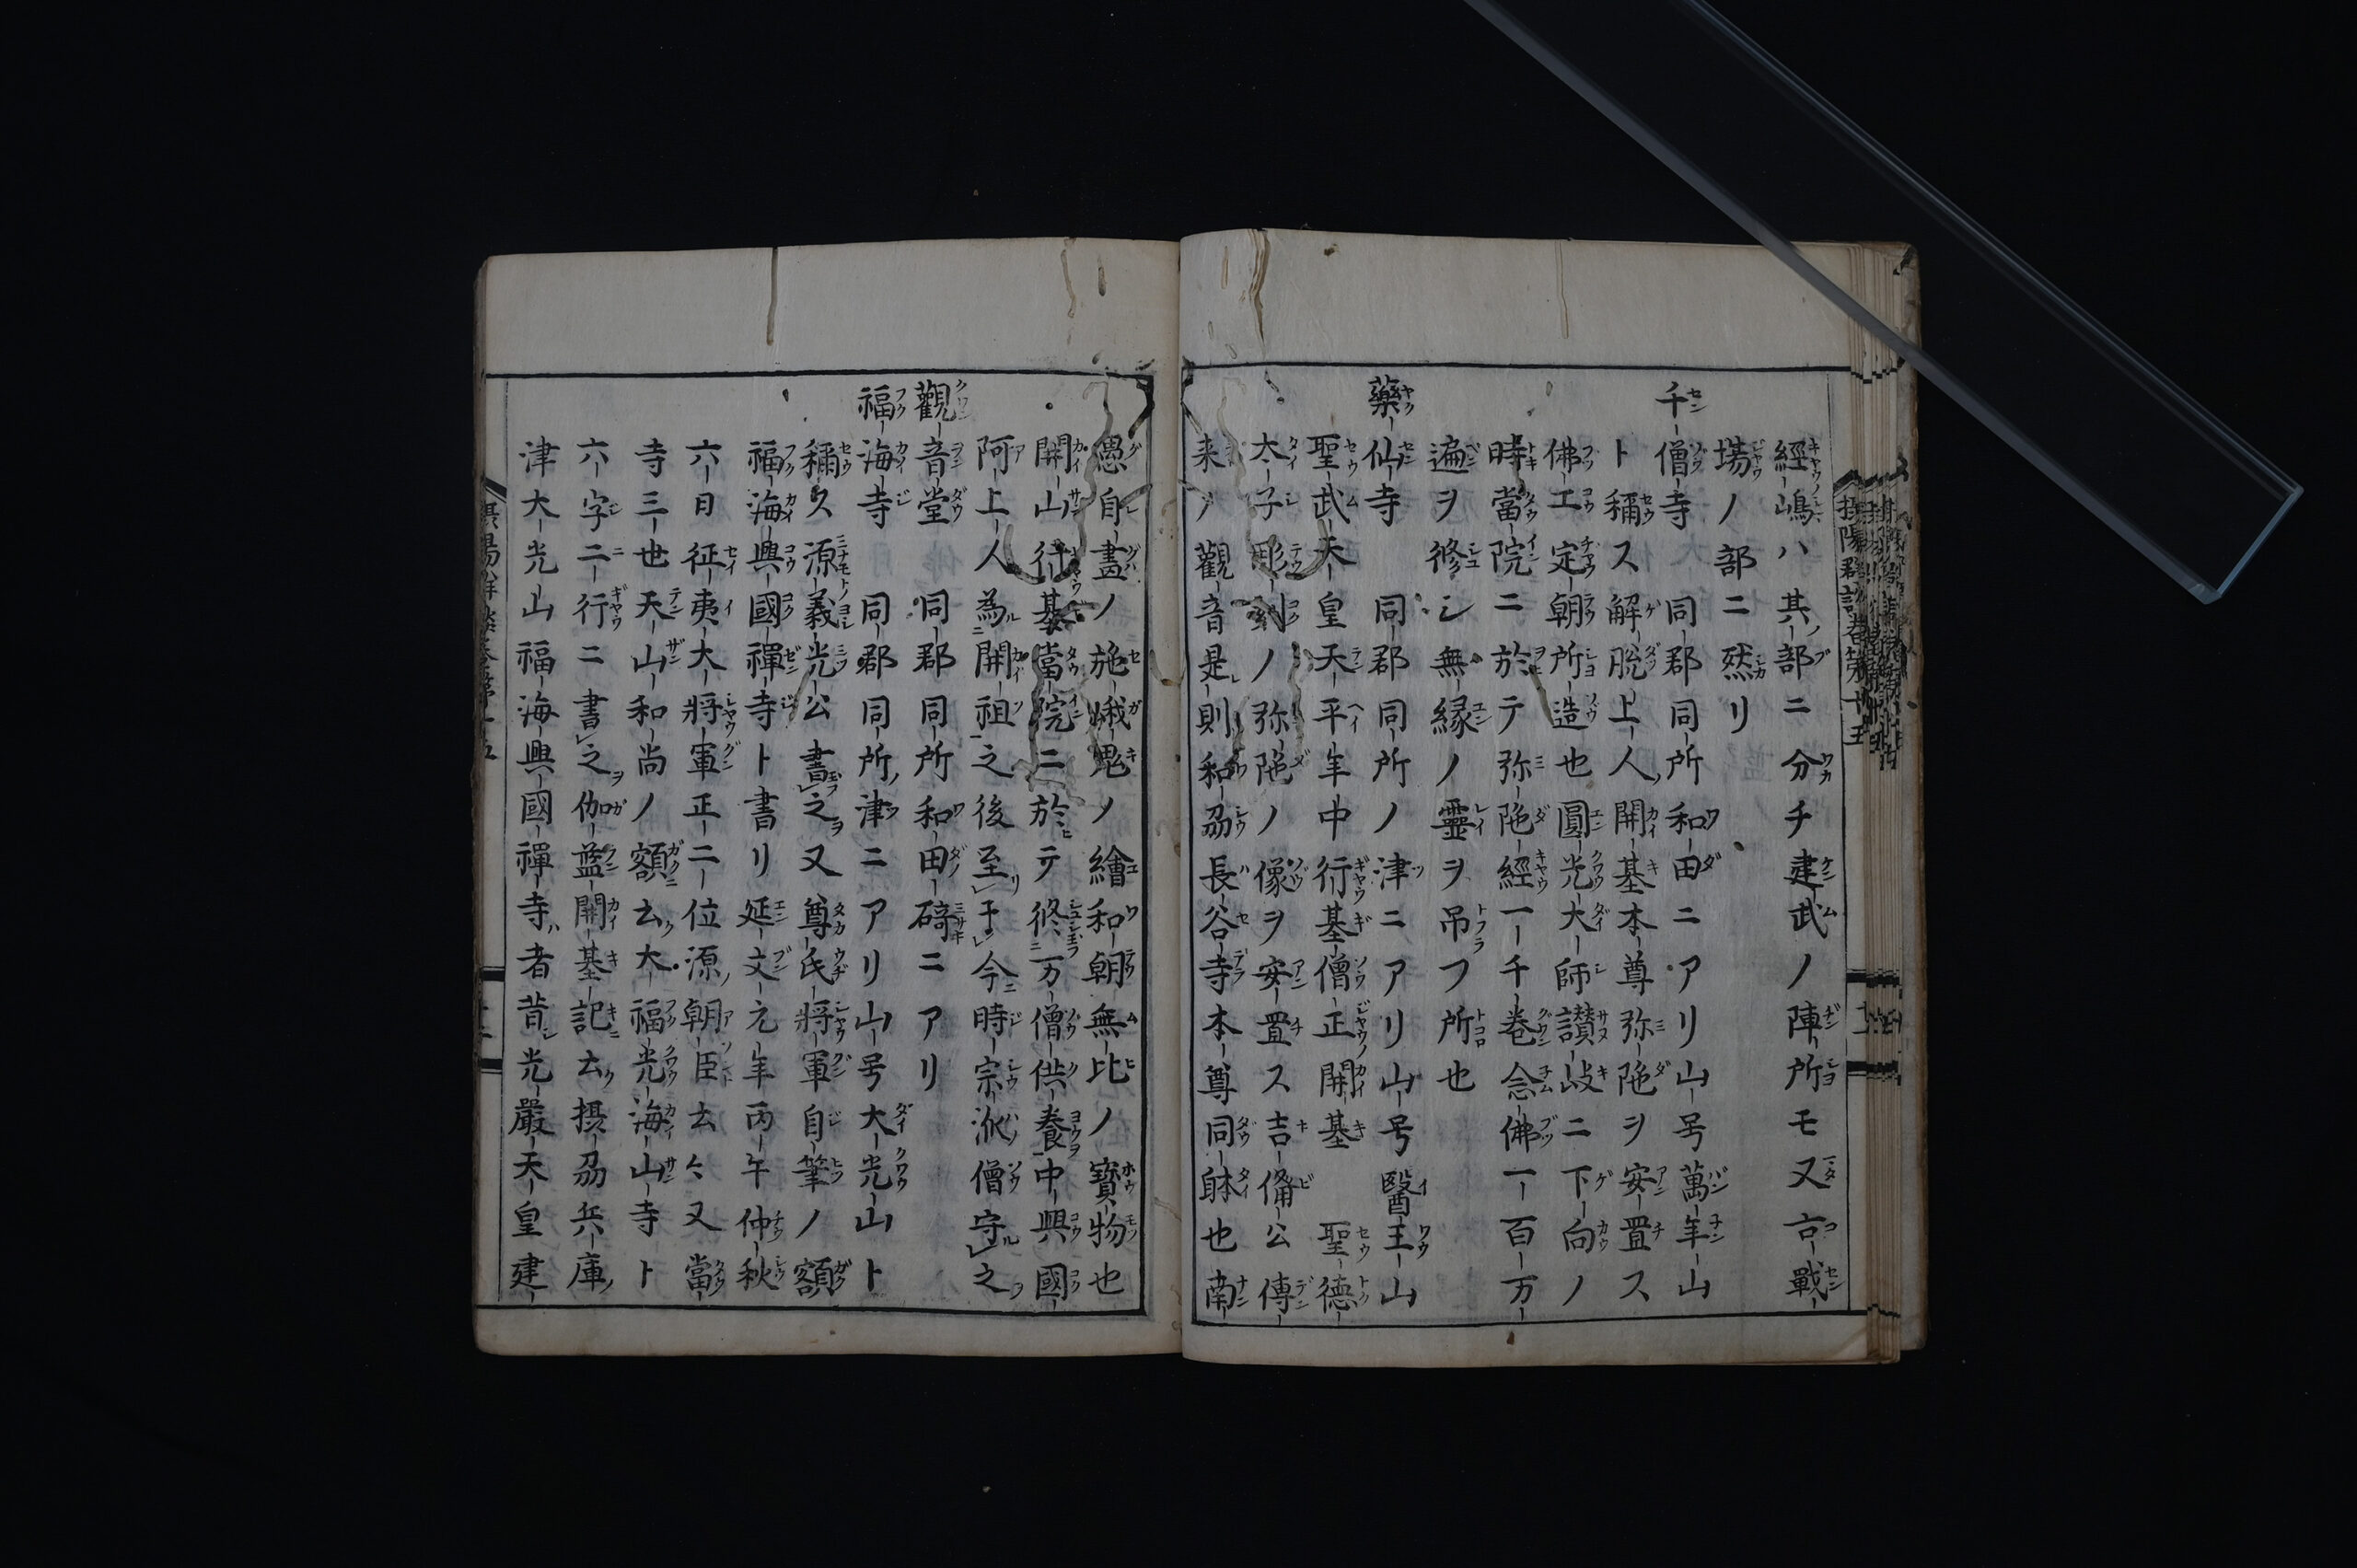 經嶋ハ其部ニ分チ建武ノ陣所モ又古戰
場ノ部ニ然リ
千僧寺 同郡同所和田ニアリ山号萬年山
ト稱ス解脱上人開基本尊弥陁ヲ安置ス
佛工定朝所造也圓光大師讃岐ニ下向ノ
時當院ニ於テ弥陁經一千卷念佛一百万
遍ヲ修シ無縁ノ靈ヲ吊フ所也
藥仙寺 同郡同所ノ津ニアリ山号醫王山
聖武天皇天平年中行基僧正開基 聖德
太子彫刻ノ弥陁ノ像ヲ安置ス吉備公傳
来ノ觀音是則和刕長谷寺本尊同躰也南
愚自畫ノ施餓鬼ノ繪和朝無比ノ寶物也
開山行基當院ニ於テ修万僧供養中興國
阿上人為開祖之後至于今時宗派僧守之
觀音堂 同郡同所和田碕ニアリ
福海寺 同郡同所津ニアリ山号大光山ト
稱久源義光公書之又尊氏將軍自筆ノ額
福海興國禪寺ト書リ延文元年丙午仲秋
六日征夷大將軍正二位源朝臣去々又當
寺三世天山和尚ノ額去大福光海山寺ト
六字二行ニ書之伽藍開基記去摂刕兵庫
津大光山福海興國禪寺者昔光嚴天皇建
摂陽群談卷第十五